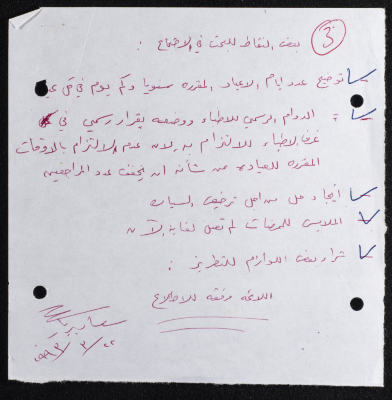 3
بعض النقاط للبحث في الاجتماع :
توضيح عدد ايام الاعياد المقرره سنويا وكم يوم في كل عيد
= الدوام الرسمي للاطباء ووضعه بقرار رسمي في
غرف الاطباء للالتزام به لان عدم الالتزام بالاوقات
المقرره للعياده من شأنه ان يخفف عدد المراجعين
ايجاد حل من اجل توقيف السياره
الملابس للممرضات لم تصل لغاية الآن
شراء بعض اللوازم للتطريز :
اللائحه مرفقه للاطلاع
٢٢ / ٣ / ١٩٩٣